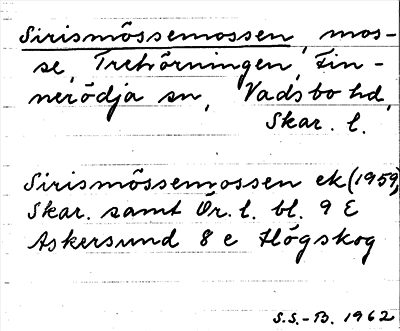 Sirismössemossen, mos-
se, Trehörningen, Fin-
nerödja sn, Vadsbo hd,
Skar. l.
Sirismössemossen ek (1959),
Skar. samt Ör. l. bl. 9 E
Askersund 8 e Högskog
S.S.-B. 1962